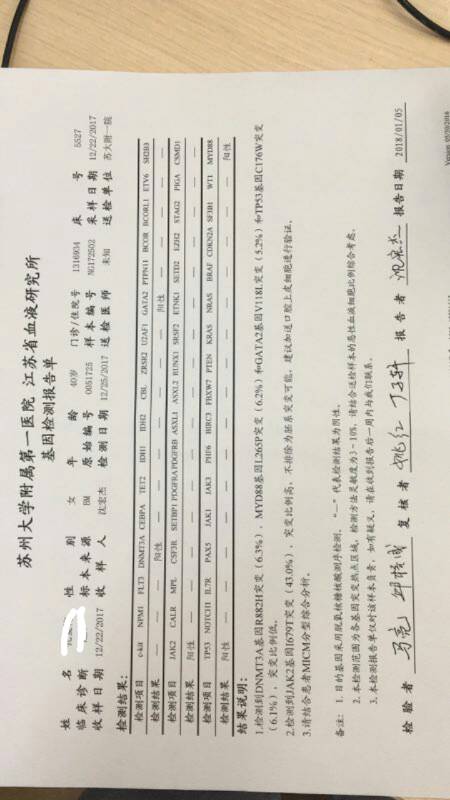 苏州大学附属第一医院 江苏省血液研究所
基因检测报告单
姓 名 性 别 女 年 龄 40岁 门诊/住院号 1316934 床 号 5527
临床诊断 标本来源 BM 原始编号 0051725 样本编号 NG172502 采样日期 12/22/2017
收样日期 12/22/2017 收 样 人 沈宏杰 检测日期 12/25/2017 送检医师 未知 送检单位 苏大附一院
检测结果:
检测项目 c-kit NPM1 FLT3 DNMT3A CEBPA TET2 IDH1 IDH2 CBL ZRSR2 U2AF1 GATA2 PTPN11 BCOR BCORL1 ETV6 SH2B3
检测结果 — — — 阳性 — — — — — — — 阳性 — — — — —
检测项目 JAK2 CALR MPL CSF3R SETBP1 PDGFRA PDGFRB ASXL1 ASXL2 RUNX1 SRSF2 ETNK1 SETD2 EZH2 STAG2 PIGA CSMD1
检测结果 阳性 — — — — — — — — — — — — — — — —
检测项目 TP53 NOTCH1 IL7R PAX5 JAK1 JAK3 PHF6 BIRC3 FBXW7 PTEN KRAS NRAS BRAF CDKN2A SF3B1 WT1 MYD88
检测结果 阳性 — — — — — — — — — — — — — — — 阳性
结果说明:
1.检测到DNMT3A基因R882H突变(6.3%)、MYD88基因L265P突变(6.2%)和GATA2基因V118I突变(5.2%)和TP53基因C176W突变
(6.1%),突变比例低。
2.检测到JAK2基因I679T突变(43.0%),突变比例高,不排除为胚系突变可能,建议加送口腔上皮细胞进行验证。
3.请结合患者MICM分型综合分析。
备注: 1.目的基因采用脱氧核糖核酸测序检测。 "—"代表检测结果为阴性。
2.本检测范围为各基因突变热点区域,检测方法灵敏度为3-10%,请结合送检样本的恶性血液细胞比例综合考虑。
3.本检测报告单仅对该样本负责,如有疑义,请在收到报告后一周内与我们联系。
检 验 者 复 核 者 报 告 者 报告日期 2018/01/05